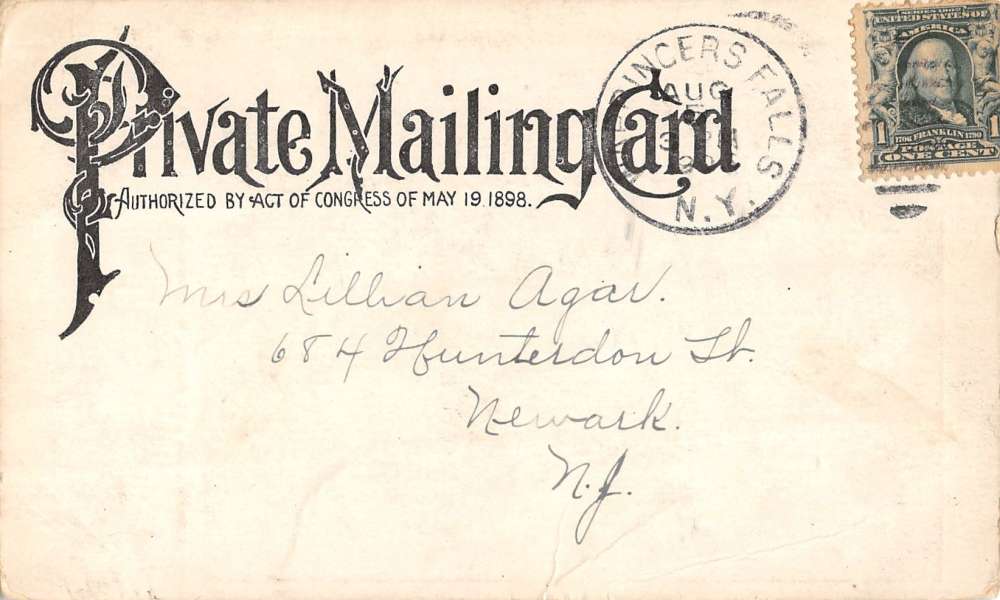 Private Mailing Card
AUTHORIZED BY ACT OF CONGRESS OF MAY 19. 1898.
FALLS
AUG
N.Y.
SERIES 1902
UNITED STATES OF
AMERICA
1 1706 FRANKLIN 1790
POSTAGE
ONE CENT
Mrs Lillian Agar.
684 Hunterdon St.
Newark.
N.J.